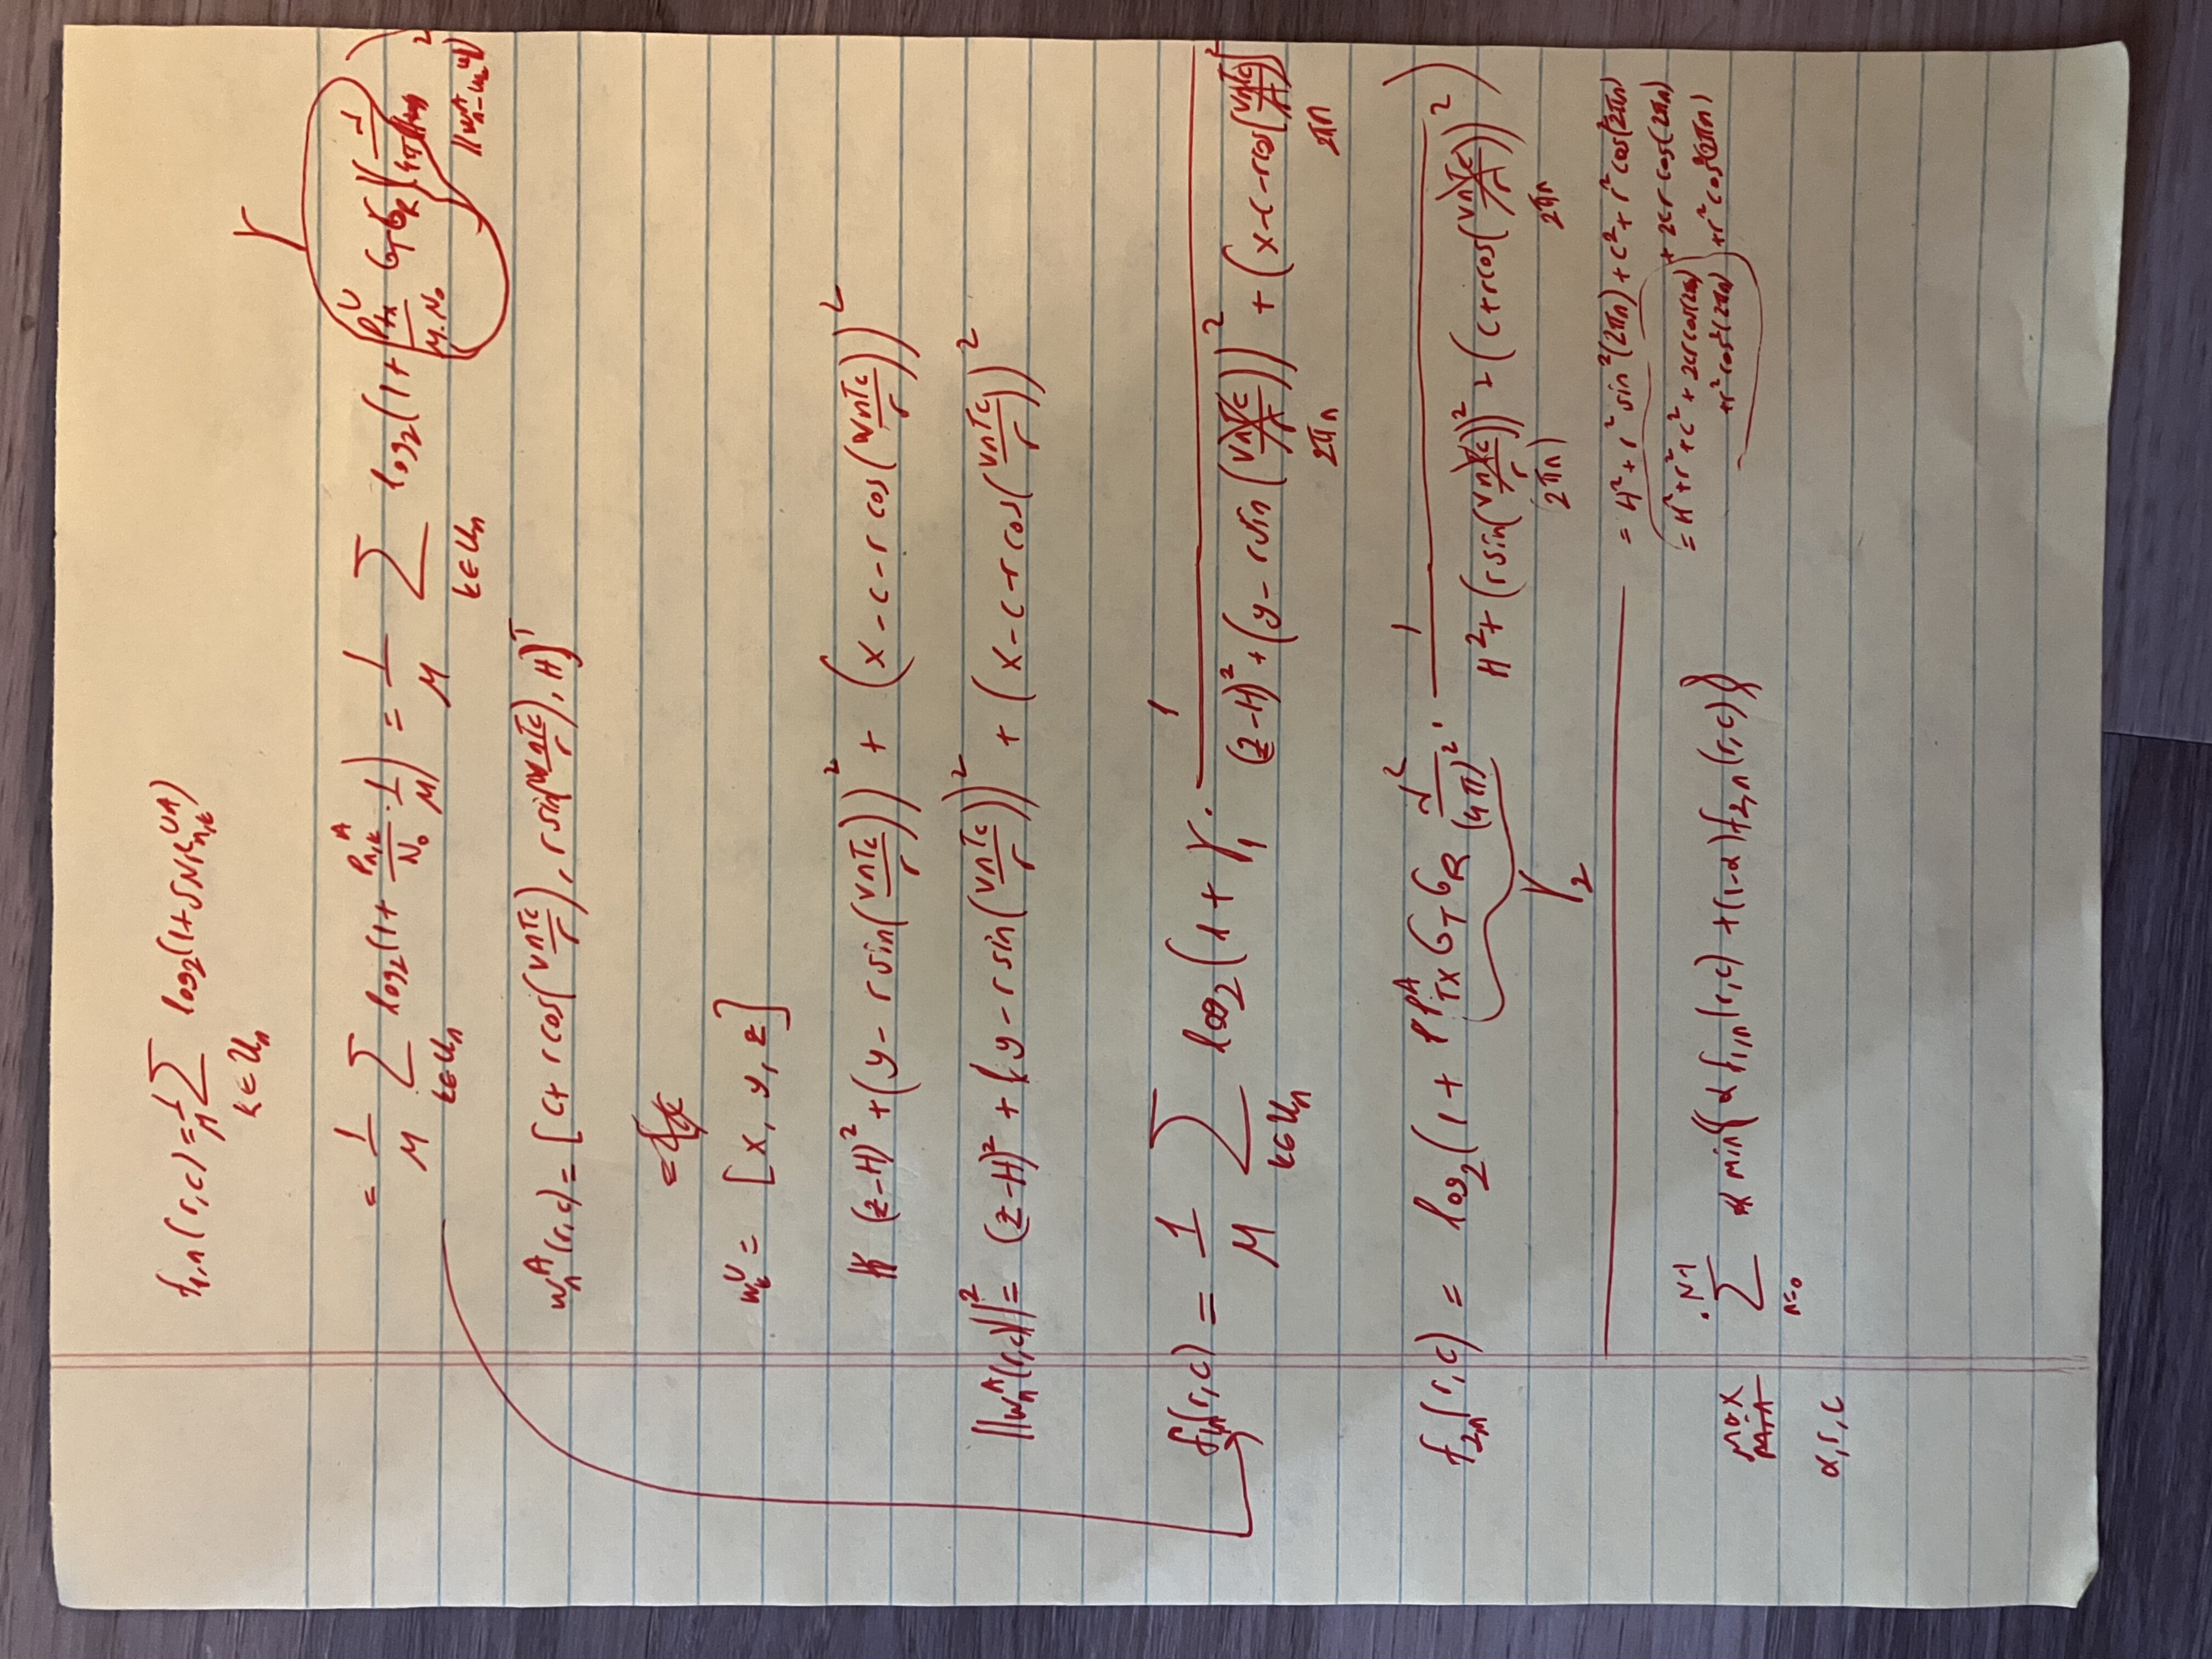 f₁,ₙ(r,c) = 1/M Σ_{k∈Uₙ} log₂(1+SNR_{n,k}^{UA})
= 1/M Σ_{k∈Uₙ} log₂(1+ P_{n,k}^A/N₀ · 1/M) = 1/M Σ_{k∈Uₙ} log₂(1+ P_{tx}^U/(M·N₀) G_T G_R
γ
wₙ^A(r,c) = [c+ r cos(vnTc/r), r sin(vnTc/r), H]^T
w_k^U = [x, y, z]
(z-H)² + (y - r sin(vnTc/r))² + (x - c - r cos(vnTc/r))²
||wₙ^A(r,c)||² = (z-H)² + (y - r sin(vnTc/r))² + (x - c - r cos(vnTc/r))²
f₁ₙ(r,c) = 1/M Σ_{k∈Uₙ} log₂(1 + γ₁ · 1/((z-H)² + (y - r sin(vnTc/r))² + (x - c - r cos(vnTc/r))²
2πn 2πn
f₂ₙ(r,c) = log₂(1 + P_{TX}^A G_T G_R λ²/(4π)² · 1/(H² + (r sin(vnTc/r))² + (c + r cos(vnTc/r))²)
γ₂ (2πn) 2πn
= H² + r² sin²(2πn) + c² + r² cos²(2πn)
+ 2cr cos(2πn)
= H² + r² + c² + 2cr cos(2πn)
+r² cos²(2πn) +r² cos²(2πn)
max Σ_{n=0}^{N-1} min(α f₁,ₙ(r,c) + (1-α) f₂,ₙ(r,c))
α, r, c